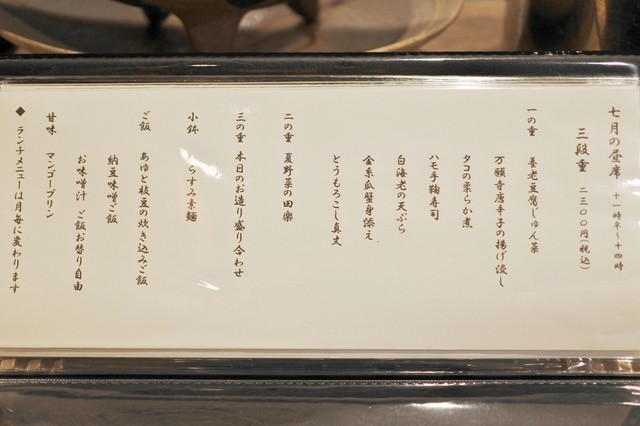 七月の昼席 十一時半〜十四時
三段重 二三〇〇円(税込)
一の重 養老豆腐じゅん菜
万願寺唐辛子の揚げ浸し
タコの柔らか煮
ハモ手鞠寿司
白海老の天ぷら
金糸瓜蟹身添え
とうもろこし真丈
二の重 夏野菜の田楽
三の重 本日のお造り盛り合わせ
小鉢 からすみ素麺
ご飯 あゆと枝豆の炊き込みご飯
納豆味噌ご飯
お味噌汁 ご飯お替り自由
甘味 マンゴープリン
◆ ランチメニューは月毎に変わります